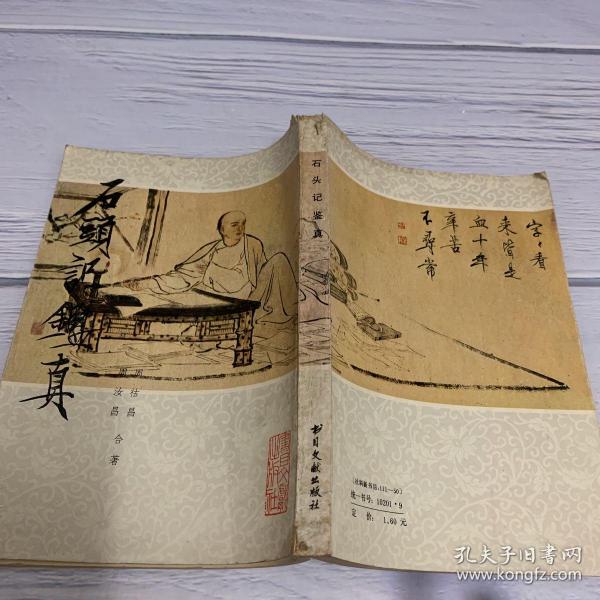 石頭記鑑真
周祜昌
周汝昌 合著
石头记鉴真
书目文献出版社
字々看
来皆是
血十年
辛苦
不尋常
〔社科新书目:111—50〕
统一书号: 10201·9
定 价: 1.60 元
孔夫子旧书网
www.kongfz.com